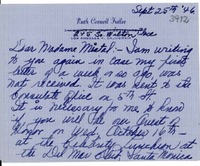 Sept 25th '46
Ruth Cornell Fuller
245 So. Wilton Place
3912
Dear Madame Mistral:- I am writing
to you again in case my first
letter of a week or so ago, was
not received. It was sent to the
Consulate Office on 5th St.
It is necessary for me to know
if you will be our Guest of
Honor on Wed. October 16th -
at the Celebrity Luncheon - at
the Del Mar Club, Santa Monica